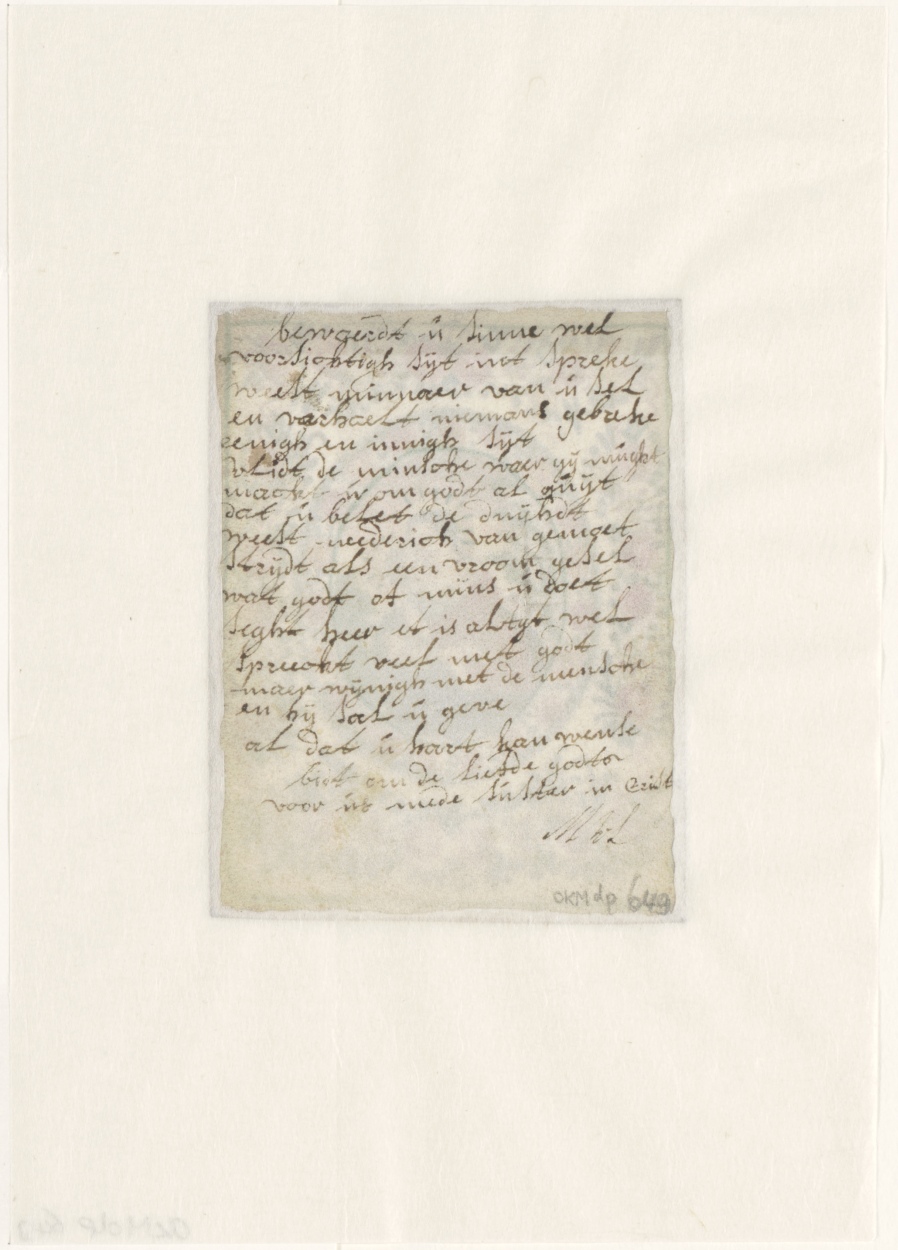 bewaerdt ú sinne wel
voorsichtigh sijt int spreke
weest minnaer van ú sel
en verhaelt niemans gebreke
eenigh en innigh sijt
vlidt de minsche waer gij múght
mackt ú om godt al qúijt
dat ú belet de dúijhdt
weest needерich van gemoet
strijdt als een vroom gesel
wat godt of mins ú doet
seght heer et is altyt wel
spreeckt veel met godt
maer wijnigh met de mensche
en hij sal ú geve
al dat ú hart kan wense
bidt om de liefde godts
voor úe mede súster in Crist
OKM dp 649